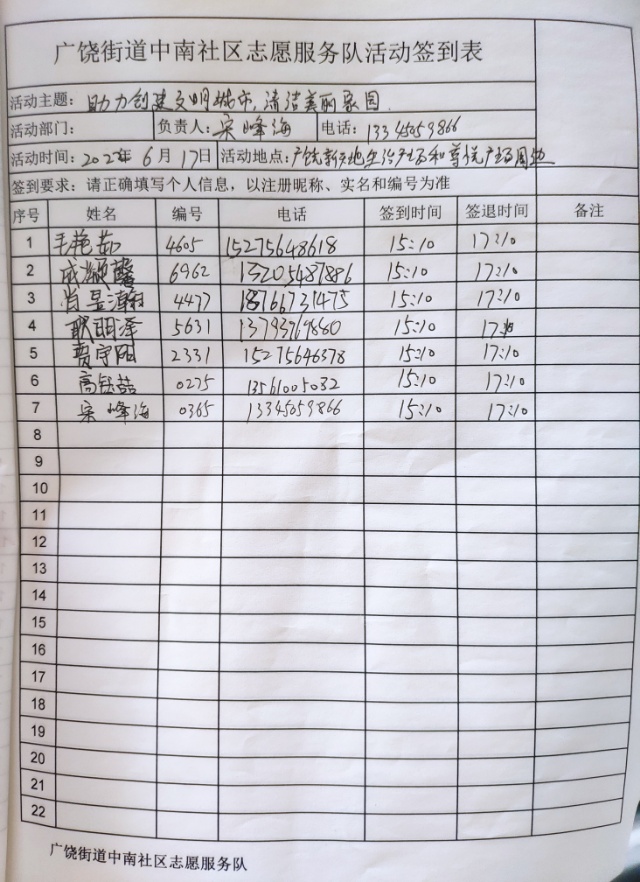 广饶街道中南社区志愿服务队活动签到表
活动主题：助力创建文明城市，清洁美丽家园.
活动部门： 负责人：宋峰海 电话：13345059866
活动时间：2022年6月17日 活动地点：广饶新天地生活广场和尊悦广场周边
签到要求：请正确填写个人信息，以注册昵称、实名和编号为准
序号 姓名 编号 电话 签到时间 签退时间 备注
1 毛艳茹 4605 15275648618 15:10 17:10
2 6962 15:10 17:10
3 4477 15:10 17:10
4 5631 13793769840 15:10
5 2331 15275646378 15:10 17:10
6 高钰喆 0275 13561005032 15:10 17:10
7 宋峰海 0365 13345059866 15:10 17:10
8
9
10
11
12
13
14
15
16
17
18
19
20
21
22
广饶街道中南社区志愿服务队